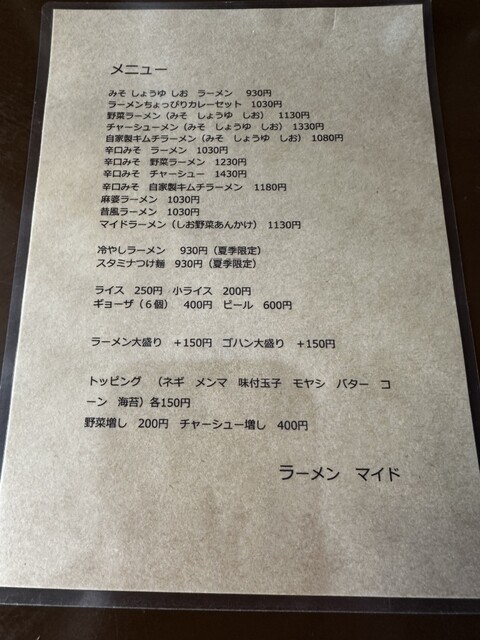 メニュー
みそ しょうゆ しお　ラーメン　930円
ラーメンちょっぴりカレーセット　1030円
野菜ラーメン（みそ　しょうゆ　しお）　1130円
チャーシューメン（みそ　しょうゆ　しお）　1330円
自家製キムチラーメン（みそ　しょうゆ　しお）　1080円
辛口みそ　ラーメン　1030円
辛口みそ　野菜ラーメン　1230円
辛口みそ　チャーシュー　1430円
辛口みそ　自家製キムチラーメン　1180円
麻婆ラーメン　1030円
昔風ラーメン　1030円
マイドラーメン（しお野菜あんかけ）　1130円
冷やしラーメン　930円（夏季限定）
スタミナつけ麺　930円（夏季限定）
ライス　250円　小ライス　200円
ギョーザ（６個）　400円　ビール　600円
ラーメン大盛り　＋150円　ゴハン大盛り　＋150円
トッピング　（ネギ　メンマ　味付玉子　モヤシ　バター　コ
ーン　海苔）各150円
野菜増し　200円　チャーシュー増し　400円
ラーメン　マイド